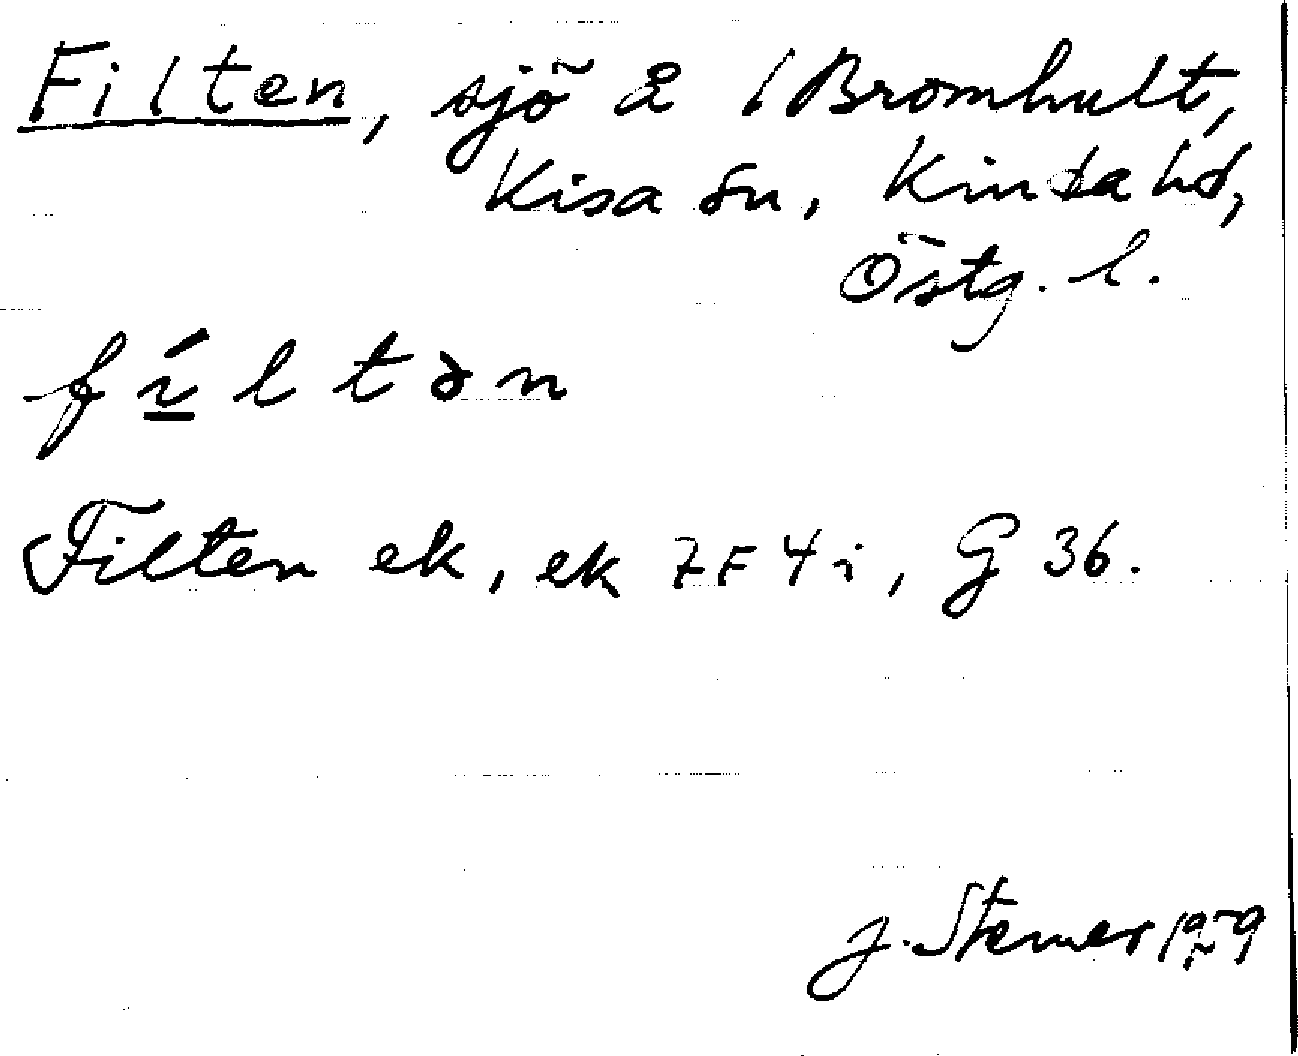 Filten, sjö å 1 Bromhult,
Kisa sn, Kinda hd,
Östg. l.
fíltən
Filten ek, ek 7F4i, G 36.
J. 1959